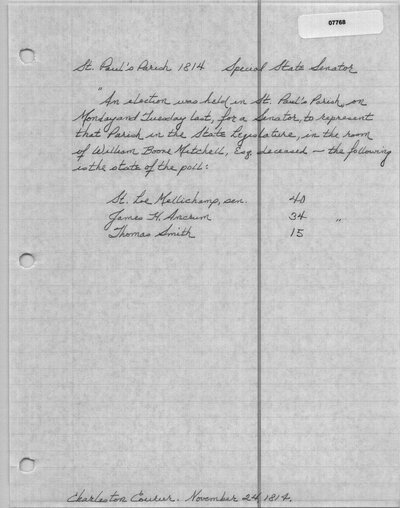 07768
St. Paul's Parish 1814 Special State Senator
"An election was held in St. Paul's Parish, on
Monday and Tuesday last, for a Senator, to represent
that Parish in the State Legislature, in the room
of William Boone Mitchell, Esq. deceased — the following
is the state of the poll:
St. Loe Mellichamp, sen. 40
James H. Ancrum 34 "
Thomas Smith 15
Charleston Courier. November 24, 1814.